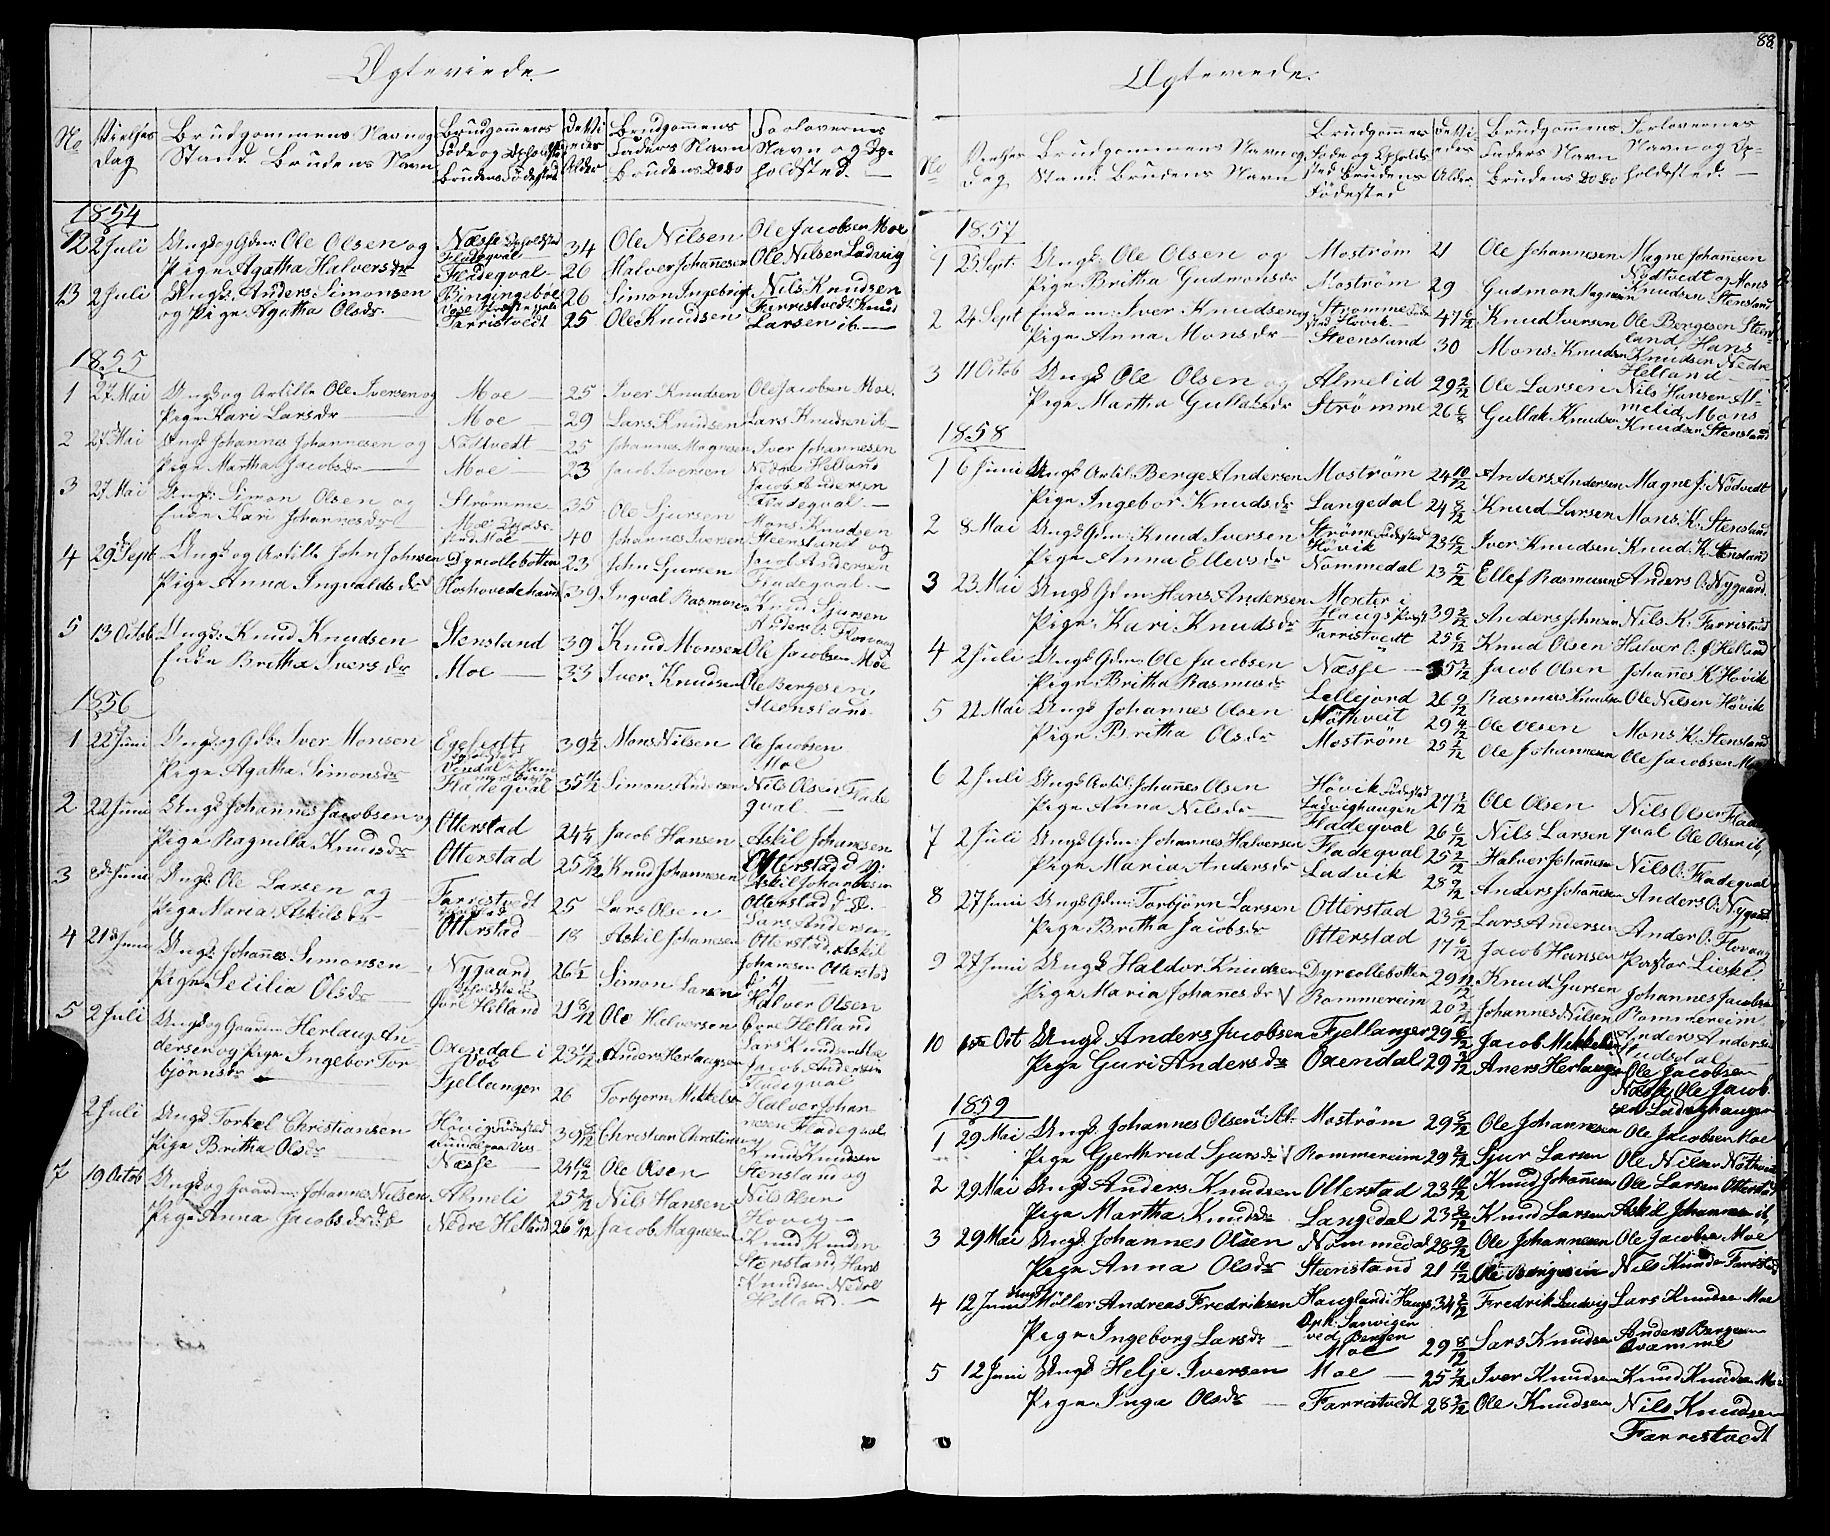 88.
Ægteviede.
No Vielses Dag Brudgommens Navn og Stand. Brudens Navn Brudgommens Føde og Opholdsted Brudens Fødested De Viedes Alder Brudgommens Faders Navn Brudens Do Do Forlovernes Navn og Opholdsted.
1854
12 2 Juli Ungk og Gdm: Ole Olsen og Næsse Opholdsted Fladeqval 34 Ole Nilsen Ole Jacobsen Moe
Pige Agatha Halversdr Fladeqval 26 Halver Johannesen Ole Nilsen Ladvig
13 2 Juli Ungk: Anders Simonsen Bingingebøe 26 Simon Ingebrigt Nils Knudsen
og Pige Agatha Olsdr. Farristvedt 25 Ole Knudsen Farristvedt Knud Larsen ib.
1855
1 27 Mai Ungk og Artille Ole Iversen og Moe 25 Iver Knudsen Ole Jacobsen Moe.
Pige Kari Larsdr Moe 29 Lars Knudsen Lars Knudsen ib
2 27 Mai Ungk Johannes Johannesen og Nødtvedt 25 Johannes Magnesen Iver Johannesen
Pige Martha Jacobsdr Moe 23 Jacob Iversen Nedre Helland
3 27 Mai Ungk: Simon Olsen og Strømme 35 Ole Sjursen Jacob Andersen Fladeqval
Enke Kari Johannesdr Moe Opholdsted Moe 40 Johannes Iversen Mons Knudsen Steensland og
4 29 Sept Ungk og Artille John Johnsen Dyrcollebotten 23 John Gjursen Jacob Andersen
Pige Anna Ingvaldsdr Hoshovedehavn 39 Ingval Rasmusen Fladeqval
5 13 Octob Ungk: Knud Knudsen Stensland 39 Knud Monsen Knud Sjursen Anders O: Flovaag Ole Jacobsen Moe
Enke Britha Iversdr Moe 33 Iver Knudsen Ole Bergesen Steensland.
1856
1 22 Juni Ungk og Gdb: Iver Monsen 39 1/2 Mons Nilsen Ole Jacobsen Moe
Pige Agatha Simonsdr Fladeqval 35 11/12 Simon Andersen Nils Olsen Fladeqval
2 22 Juni Ungk Johannes Jacobsen og Otterstad 24 1/2 Jacob Hansen Askil Johannesen
Pige Ragnilla Knudsdr Otterstad 25 Knud Johannesen Otterstad
3 Juni Ungk: Ole Larsen og Farristvedt 25 Lars Olsen Askil Johannesen Otterstad
Pige Maria Askilsdr Otterstad 18 Askil Johanesen Lars Andersen Otterstad, Askil
4 21de Juni Ungk: Johannes Simonsen Nygaard 26 1/2 Simon Larsen Johannesen Otterstad
Pige Secilia Olsdr Øvre Helland 21 8/12 Ole Halversen Halver Olsen Øvre Helland
5 2 Juli Ungk og Gaardm Herlaug Andersen og Pige Ingebor Torbjørnsdr Oxendal i Vos 23 4/12 Anders Herlaugsen Lars Knudsen Moe Jacob Andersen Fladeqval
Fjellanger 26 Torbjørn Mikkelsen Halver Johannesen Fladeqval
2 Juli Ungk Torkel Christiansen Høvig 39 Christian Christiansen Knud Knudsen
Pige Britha Olsdr Næsse 24 10/12 Ole Olsen Stensland og
7 19 Octob Ungk og Gaardm: Johannes Nilsen Almeli 25 2/12 Nils Hansen Nils Olsen Hovig
Pige Anna Jacobsdr Nedre Helland 26 Jacob Magnesen Knud Knudsn Stensland, Hans Knudsen Nedre Helland.
Ægteviede.
No Vielses Dag Brudgommens Navn og Stand. Brudens Navn Brudgommens Føde og Opholdsted Brudens Fødested De Viedes Alder Brudgommens Faders Navn Brudens Do Do Forlovernes Navn og Opholdested.
1857
1 25 Sept: Ungk: Ole Olsen og Mostrøm 21 Ole Johannesen Magne Johannesen
Pige Britha Gudmonsdr Mostrøm 29 Gudmon Magnesen Nødtvedt og Mons Knudsen Stensland
2 24 Sept Enkem: Iver Knudsen og Strømme Høvik 47 6/12 Knud Iversen Ole Bergesen Steensland, Hans
Pige Anna Monsdr Steensland 30 Mons Knudsen Knudsen Nedre Helland
3 11 Octob Ungk Ole Olsen og Almelid 29 2/12 Ole Larsen Nils Hansen Almelid, Mons
Pige Martha Gullaksdr Strømme 26 Gullak Knudsen Knudsen Stensland
1858
1 6 Juni Ungk Artil: Berge Andersen Mostrøm 24 10/12 Anders Andersen Magne J: Nødvedt
Pige Ingebor Knudsdr Langedal 24 8/12 Knud Larsen Mons K. Stensland
2 8 Mai Ungk Gdm: Knud Iversen Strøme Fødested Høvik 23 6/12 Iver Knudsen Knud K. Stensland
Pige Anna Ellevsdr Nommedal 23 5/12 Ellef Rasmusen Anders O: Nygaard.
3 23 Mai Ungk Gdm: Hans Andersen 39 2/12 Anders Johnsen Nils K. Farristvedt
Pige: Kari Knudsdr Farristvedt 25 6/12 Knud Olsen Halver O. Ø Helland
4 2 Juli Ungk Gdm: Ole Jacobsen Næsse 35 3/12 Jacob Olsen Johannes K Høvik
Pige: Britha Rasmusdr Lellejord 26 9/12 Rasmus Knudsen Ole Nilsen Høvik
5 22 Mai Ungk Johannes Olsen Nøthveit 29 4/12 Ole Olsen Mons K. Stensland
Pige Britha Olsdr Mostrøm 25 2/12 Ole Johannesen Ole Jacobsen Moe
6 2 Juli Ungk Artil: Johannes Olsen Høvik Fødested Ladvighaugen 27 Ole Olsen Nils Olsen Fladeqval
Pige Anna Nilsdr Fladeqval 26 6/12 Nils Larsen Ole Olsen ib,
7 2 Juli Ungk Gdm: Johannes Halversen Fladeqval 25 2/12 Halver Johannesen Nils O: Fladeqval
Pige Maria Andersdr Ladvik 28 Anders Johannesen Anders O. Nygaard
8 27 Juni Ungk Gdm: Torbjørn Larsen Otterstad 23 6/12 Lars Andersen Anders O: Flovaag
Pige Britha Jacobsdr Otterstad 17 6/12 Jacob Hansen Pastor Lieske
9 27 Juni Ungk Haldor Knudsen Dyrcollebotten 29 11/12 Knud Gursen Johannes Jacobsen
Pige Maria Johannesdr Rommereim 20 Johannes Nilsen Rommereim
10 Oct Ungk Anders Jacobsen Fjellanger 29 6/12 Jacob Mikkelsen Anders Andersen
Pige Guri Andersdr Oxendal 29 Aners Herlaugsen Ole Jacobsen Næsse, Ole Jacobsen Ladvighaugen
1859
1 29 Mai Ungk Johannes Olsen Mostrøm 29 8/12 Ole Johannesen Ole Jacobsen Moe
Pige Gjerthrud Sjursdr Rommereim 29 Sjur Larsen Ole Nilsen Nøthveit
2 29 Mai Ungk Anders Knudsen Otterstad 23 10/12 Knud Johannesen Ole Larsen Otterstad
Pige Martha Knudsdr Langedal 23 Knud Larsen Askil Johannesen ib,
3 29 Mai Ungk: Johannes Olsen Nommedal 28 9/12 Ole Johannesen Ole Jacobsen Moe
Pige Anna Olsdr Steensland 21 10/12 Ole Bergesen Nils Knudsen Farristvedt
4 12 Juni Ungk Møller Andreas Fredriksen Haugland i Haugs Sanvigen ved Bergen 34 2/12 Fredrik Ludvig Lars Knudsen Moe
Pige Ingeborg Larsdr Moe 29 8/12 Lars Knudsen Anders Bergesen Qvamme
5 12 Juni Ungk Helje Iversen Moe 25 Iver Knudsen Knud Knudsen Moe
Pige Inga Olsdr Farristvedt 28 3/12 Ole Knudsen Nils Knudsen Farristvedt